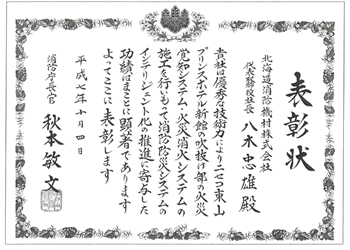 表彰状
北海道消防機材株式会社
代表取締役社長 八木忠雄殿
貴社は優秀な技術力によりニセコ東山
プリンスホテル新館の吹抜け部の火災
覚知システム・火災消火システムの
施工を行いもって消防防災システムの
インテリジェント化の推進に寄与した
功績はまことに顕著であります
よってここに表彰します
平成七年十月四日
消防庁長官
秋本敏文